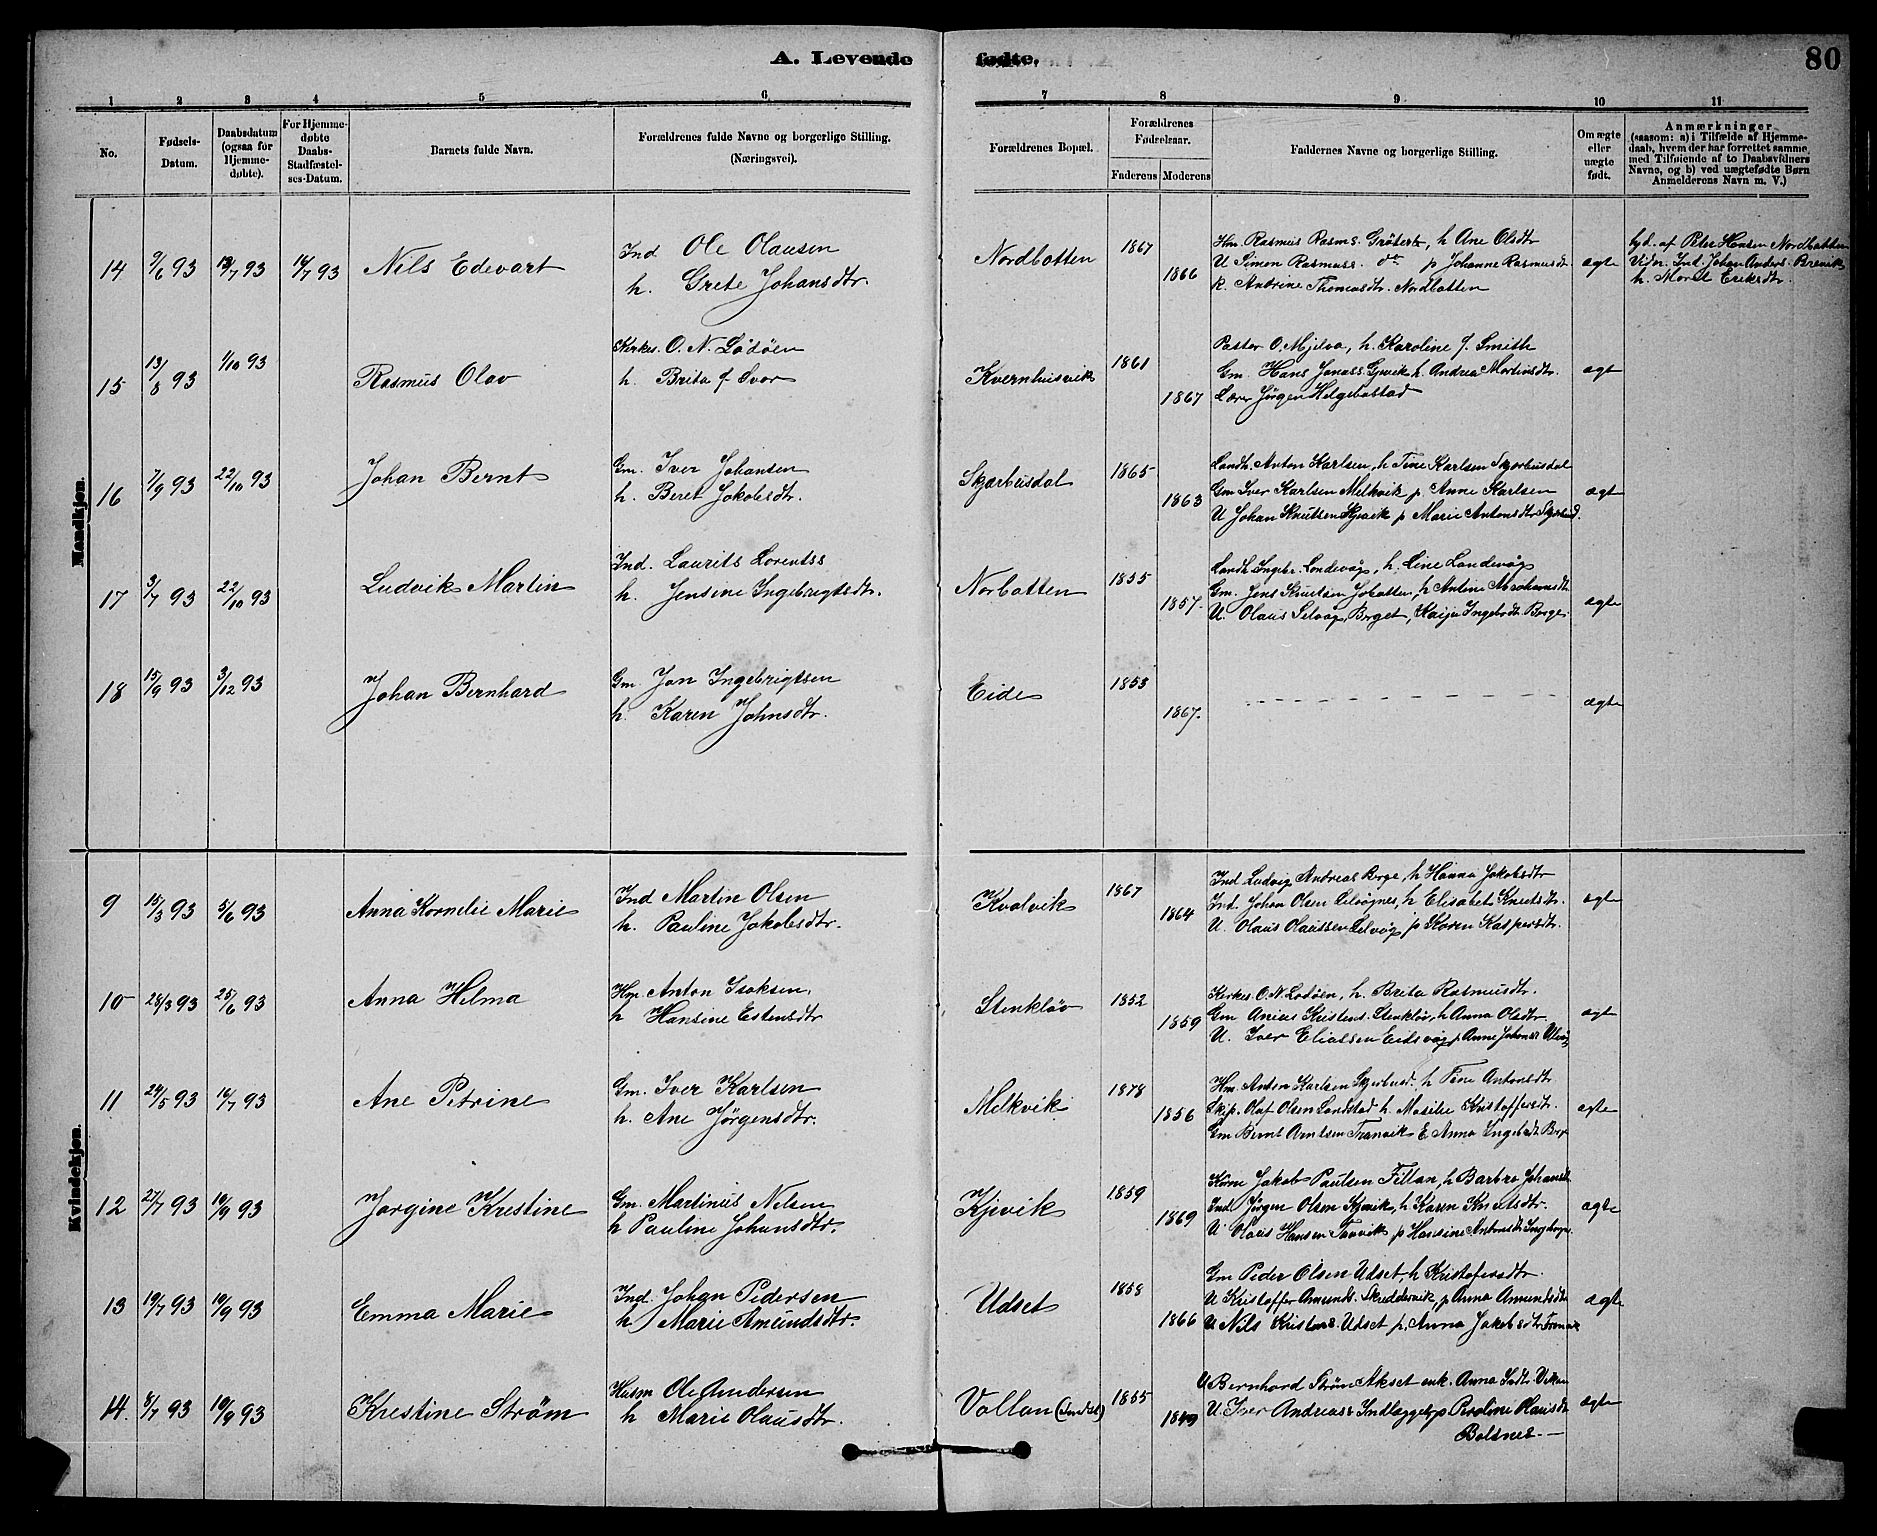 A. Levende fødte. 80
1 2 3 4 5 6 7 8 9 10 11
No.
Fødsels-
Datum.
Daabsdatum
(ogsaa for
Hjemme-
døbte).
For Hjemme-
døbte
Daabs-
Stadfæstel-
ses-Datum.
Barnets fulde Navn.
Forældrenes fulde Navne og borgerlige Stilling.
(Næringsvei).
Forældrenes Bopæl.
Forældrenes
Fødselsaar.
Faderens Moderens
Faddernes Navne og borgerlige Stilling.
Om ægte
eller
uægte
født.
Anmærkninger
(saasom: a) i Tilfælde af Hjemme-
daab, hvem der har forrettet samme,
med Tilføiende af to Daabsvidners
Navne, og b) ved uægtefødte Børn
Anmelderens Navn m. V.)
Mandkjøn.
14 9/6 93 /7 93 14/7 93 Nils Edevart
Ind Ole Olausen
h. Grete Johansdtr.
Nordbotten 1867 1866
Hm Rasmus Rasms. h Ane Olsdtr
U Simon Rasmuss. do p Johanne Rasmusdt
k. Andrine Thomasdtr. Nordbotten
ægte
hjd. af Peter Hansen Nordbotten
Vidn. Ind. Johan Anders. Brevik
h. Marit Eriksdtr.
15 13/8 93 1/10 93 Rasmus Olav
Kirkes. O. N. Lødøen
h. Brita f. Svor
Kvernhusvik 1861 1867
Pastor O. Mjelva, h. Karoline f. Smith
Gm. Hans Jonass. Gjevik h. Andrea Martinsdtr.
Lærer Jørgen Helgebostad
ægt
16 7/9 93 22/10 93 Johan Bernt
Gm. Iver Johansen
h. Beret Jakobsdtr.
Skjærbusdal 1865 1863
Landh. Anton Karlsen, h Tine Karlsen Skjærbusdal
Gm Iver Karlsen Melkvik p. Anne Karlsen
U Johan Knutsen Kjevik p Marie Antonsdtr
ægt
17 3/7 93 22/10 93 Ludvik Martin
Ind. Laurits Lorentss
h. Jensine Ingebrigtsdtr.
Norbotten 1855 1857.
Landh. Ingebr. Landevåg, h. Line Landevåg
Gm. Jens Knutsen Jøbotten, h Antine Abrahamsdt
U. Olaus Selvåg, Berget, Maija Ingebrdt. Borge
ægte
18 15/9 93 3/12 93 Johan Bernhard
Gm. Jon Ingebrigtsen
h. Karen Johnsdtr.
Eide 1853 1867.
ægte
Kvindekjøn.
9 15/3 93 5/6 93 Anna Kornelie Marie
Ind Martin Olsen
h. Pauline Jakobsdtr.
Kvalvik 1867 1864
Ind Ludvig Andreas Borge, h Hanna Jakobsdtr
Ind. Johan Olsen Selvågnes, h Elisabet Knutsdtr.
U. Olaus Olaussen Selvåg p Karen Kaspersdtr.
ægte
10 28/3 93 25/6 93 Anna Helma
Hm. Anton Isaksen,
h Hansine Estensdtr
Stenkløv 1852 1859
Kirkes. O. N. Lødøen, h. Brita Rasmusdtr.
Gm Anius Kristens. Stenkløv, h Anna Olsdtr.
U. Iver Eliassen Eidsvåg p Anne Johansdt
ægt
11 24/5 93 14/7 93 Ane Petrine
Gm. Iver Karlsen
h. Ane Jørgensdtr.
Melkvik 1878 1856
Hm. Anton Karlsen Skjærbusd., h Tine Antonsdtr.
Skip. Olaf Olsen Sandstad h. Masilie Kristoffersdtr.
Gm Bernt Arntsen Tranvik E Anna Ingebrdt. Borge
ægte
12 27/7 93 10/9 93 Jørgine Krestine
Gm. Martinus Nilsen
h Pauline Johansdtr.
Kjevik 1859 1869
Jakob Paulsen Fillan, h Barbro Johansdt.
Ind Jørgen Olsen Kjevik, h. Karen Knutsdtr.
U. Olaus Hansen p Hansine Andreasdtr
ægte
13 19/7 93 10/9 93 Emma Marie
Ind. Johan Pedersen
h Marie Amundsdtr.
Udset 1858 1866
Gm Peder Olsen Udset, h Kristofersdtr.
U Kristoffer Amunds. Skeddervik, p Anna Amundsdt
U Nils Kristens. Udset p. Anna Jakobsdtr
ægte
14. 8/7 93 10/9 93 Krestine Strøm
Husm Ole Andersen
h Marie Olausdtr.
Vollan 1855 1849
U Bernhard Strøm Akset enk. Anna
U. Iver Andreass Indlægget p Paroline Olausdt
Bolsnes.
ægte